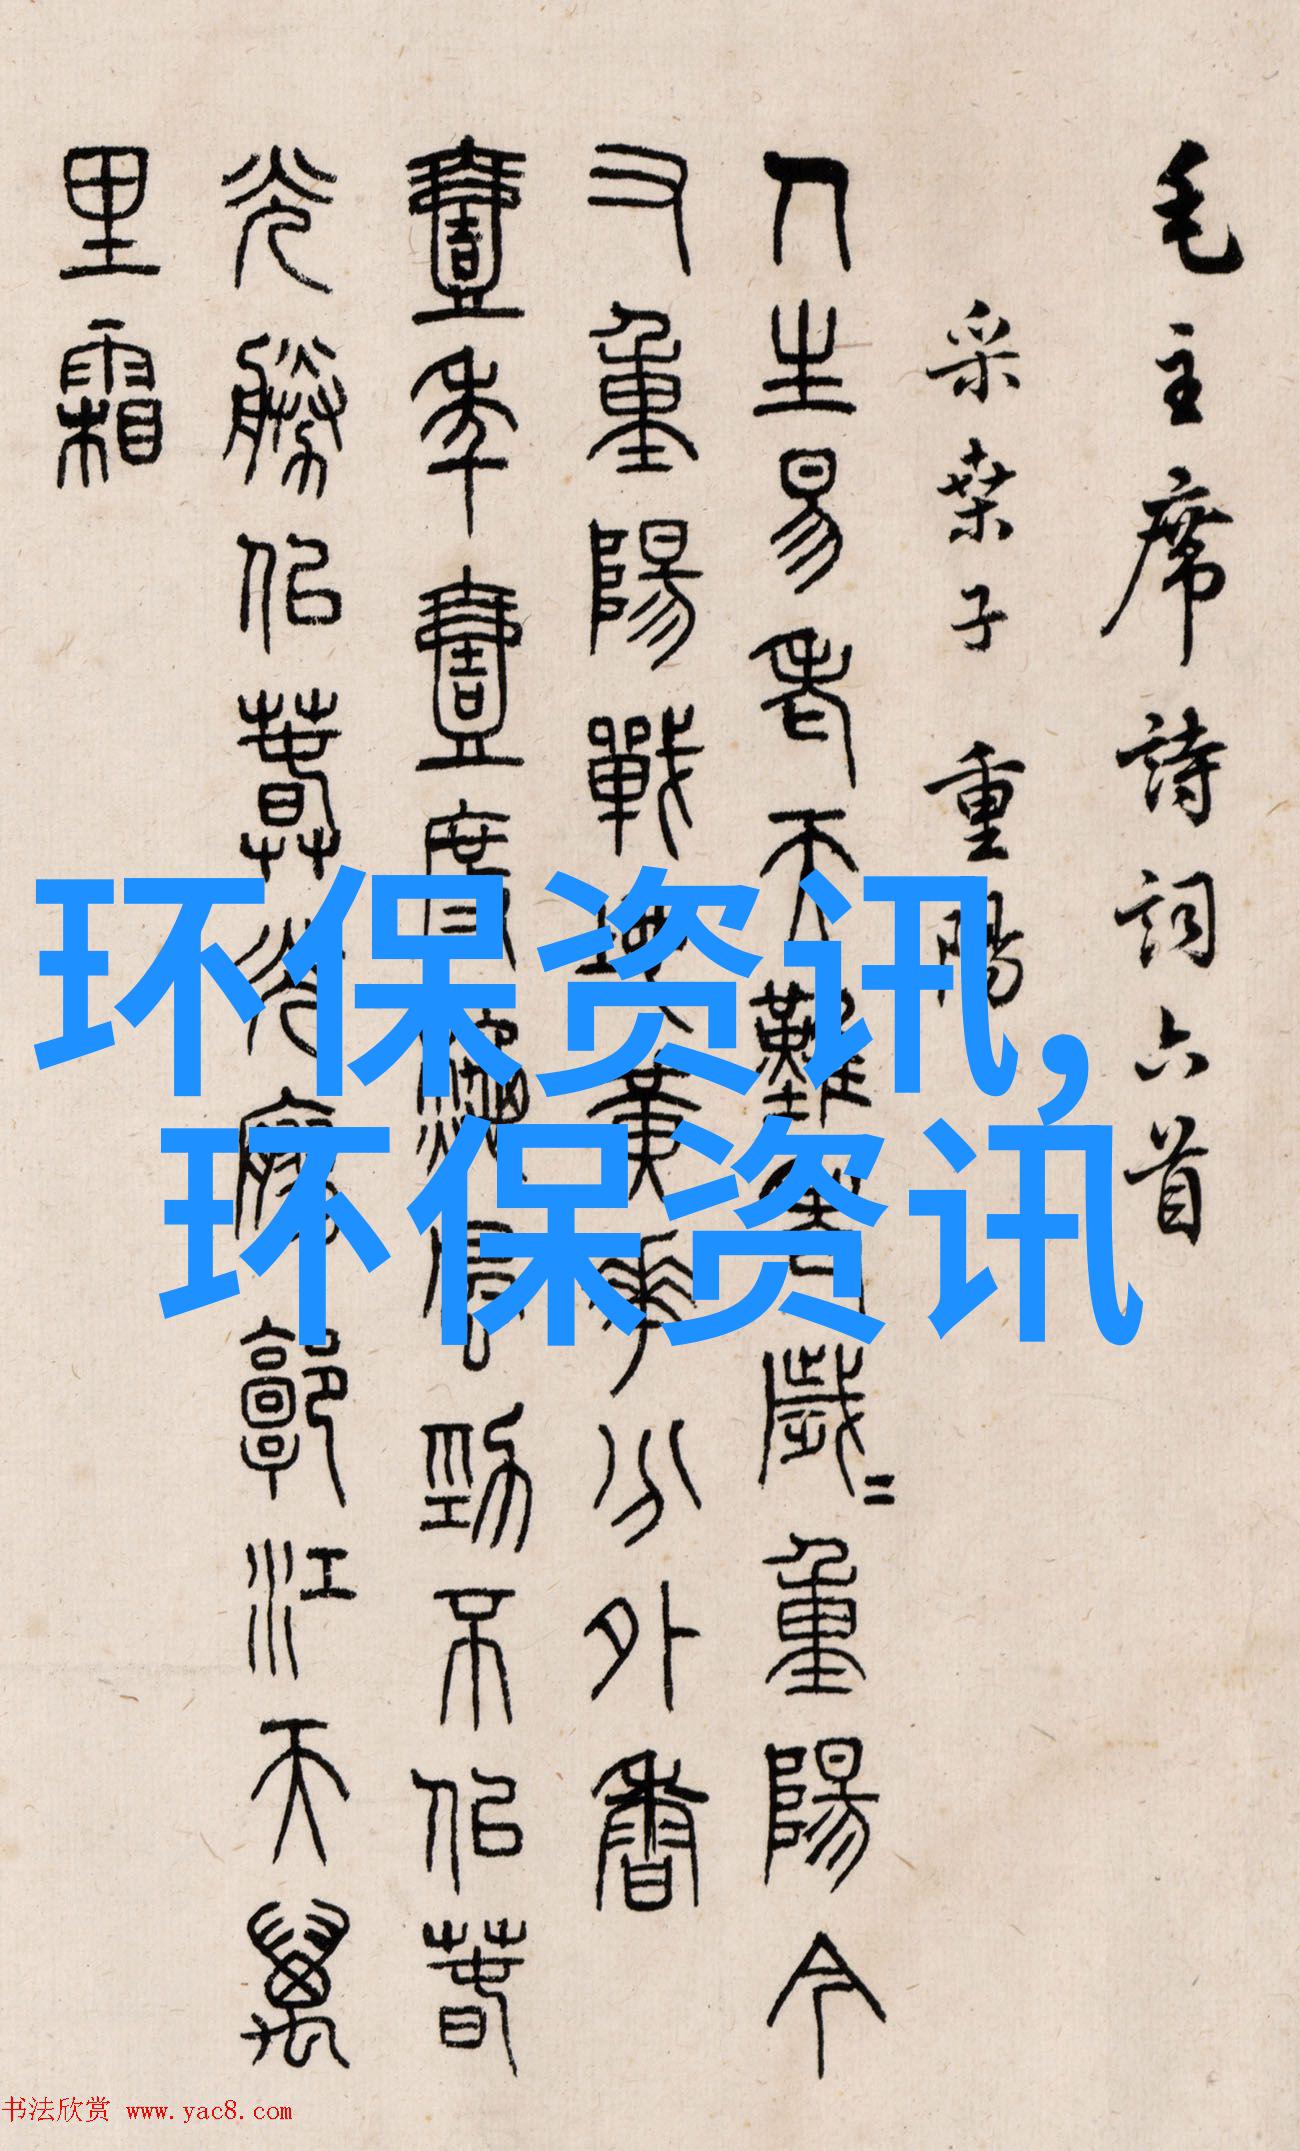 毛主席詩詞六首
采桑子 重陽
人生易老天難老歲〻重陽今
又重陽戰地黃華分外香
壹年壹度秋風勁不佀春
光勝佀春光廫郭江天萬
里霜
环保资讯,
环保资讯
书法欣赏 www.yac8.com